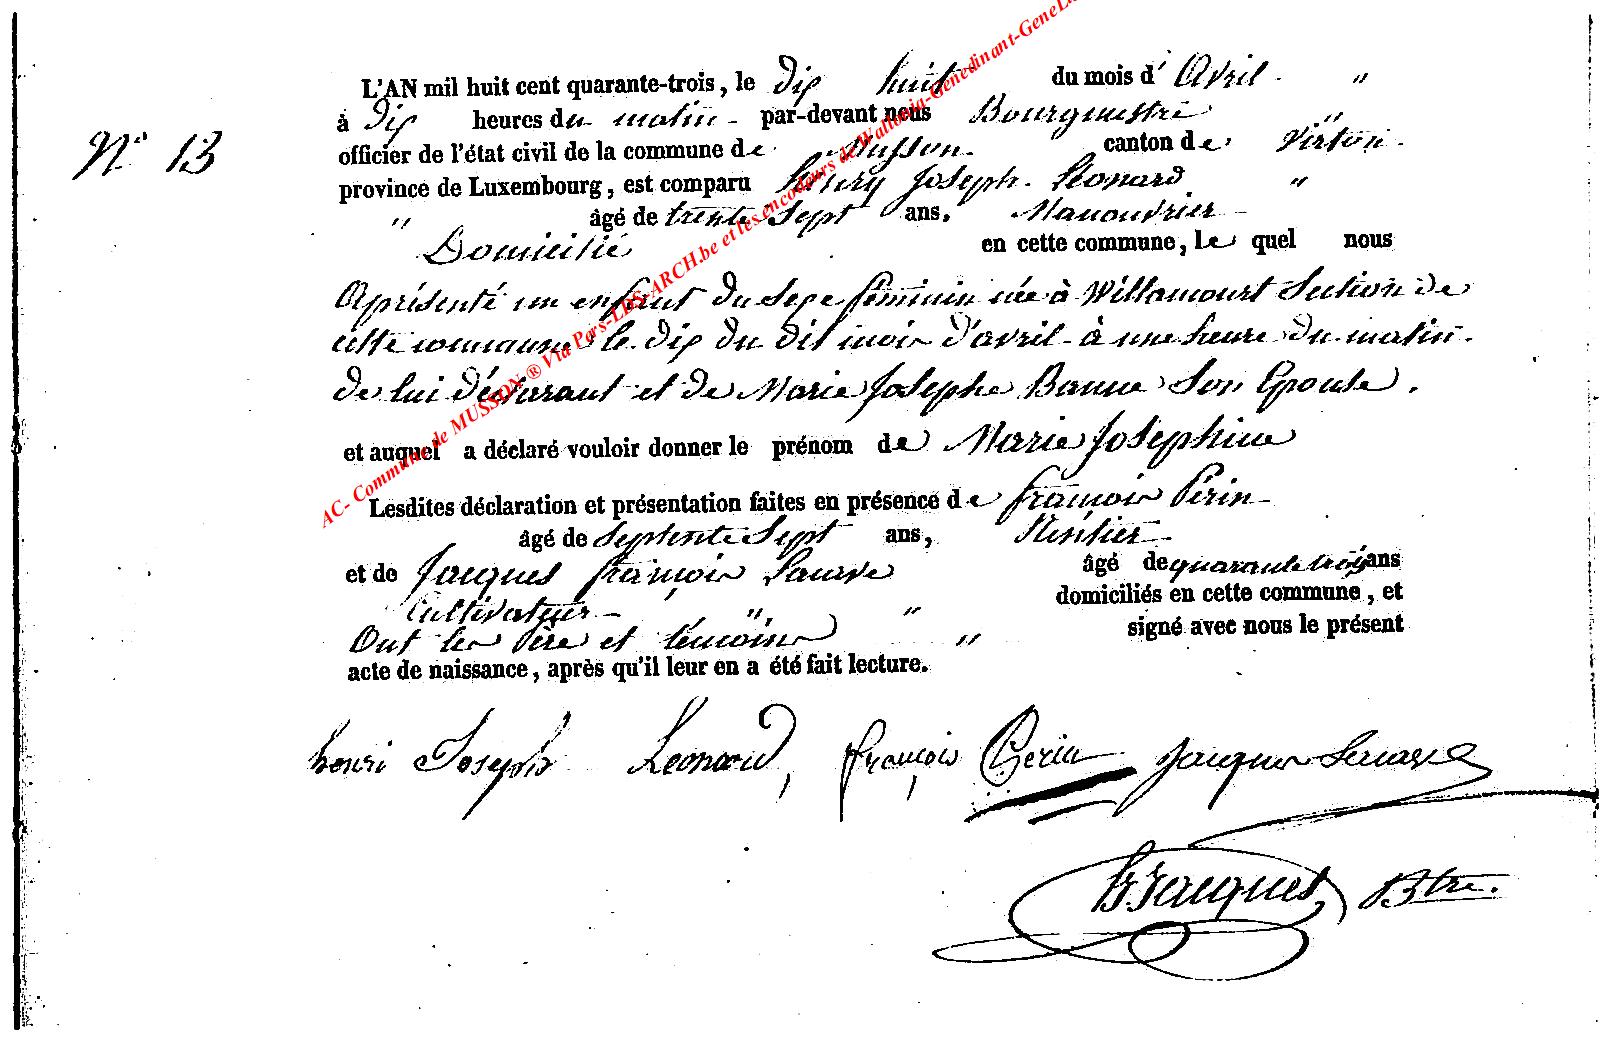 L'AN mil huit cent quarante-trois, le dix huit du mois d' Avril - "
à Dix heures du matin - par-devant nous Bourgmestre "
N° 13
officier de l'état civil de la commune de Musson. canton de Virton.
province de Luxembourg, est comparu henry Joseph. Léonard "
" âgé de trente Sept ans, Manouvrier -
Domicilié en cette commune, le quel nous
a présenté un enfant du sexe féminin née à Willamourt Section de
cette commune le dix du dit mois d'avril - à une heure du matin.
de lui déclarant et de Marie Josephe Banne Son Epouse.
et auquel a déclaré vouloir donner le prénom de Marie Josephine
Lesdites déclaration et présentation faites en présence de françois Périn -
âgé de Septente Sept ans, Rentier -
et de Jacques françois âgé de quarante trois ans
Cultivateur - " " domiciliés en cette commune, et
Ont les Père et témoins " signé avec nous le présent
acte de naissance, après qu'il leur en a été fait lecture.
henri Joseph Leonard, françois Perin Jacques
Jacquet Btre.
AC- Commune de MUSSON ® Via Pars-LDS-ARCH.be et les encodeurs de Wallonia-Genedinant-GeneL